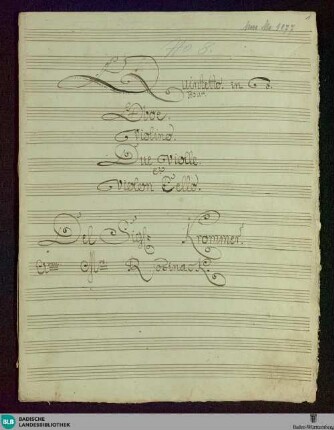 Mus. Ms. 1177
No 8.
Quintetto. in C.
pour
Oboe.
Violino.
Due Violle.
et
Violon Cello.
Del Sigl: Krommer.
BLB BADISCHE
LANDESBIBLIOTHEK
Baden-Württemberg